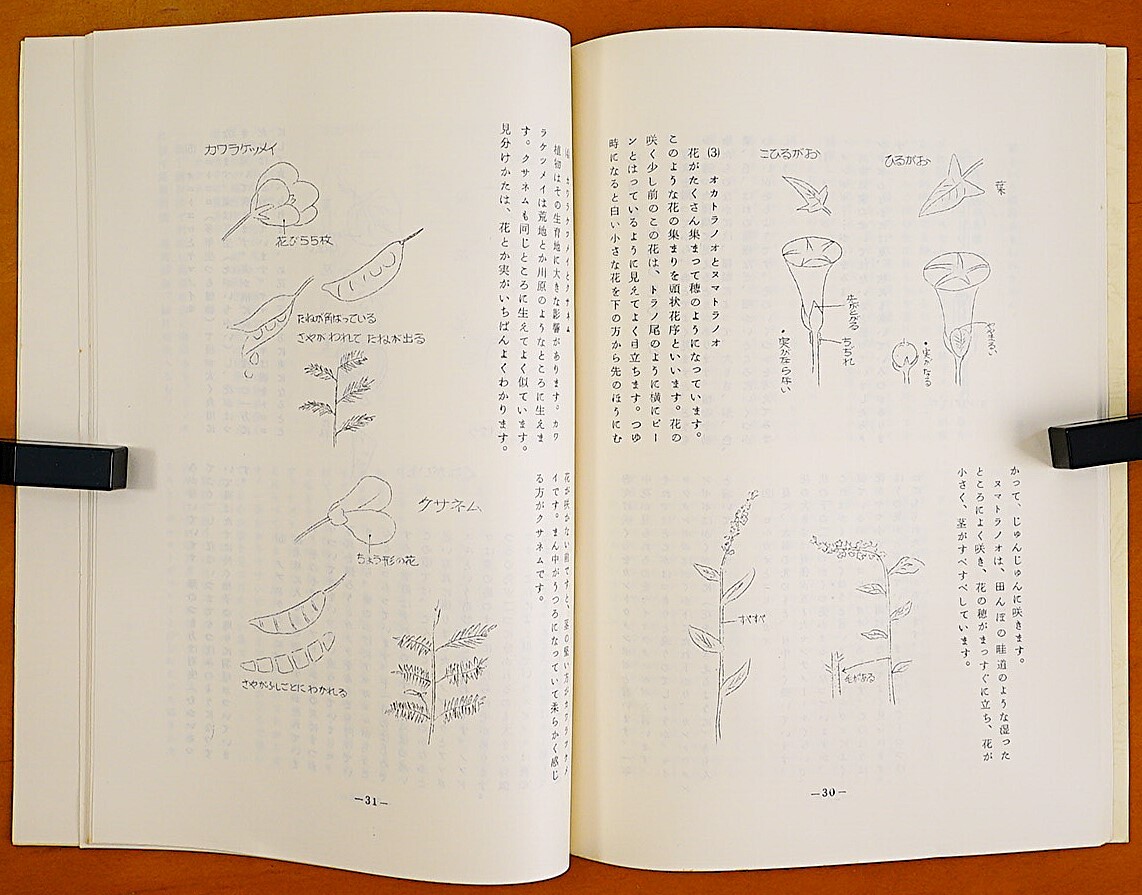 ひるがお
葉
やや丸い
・実がなる
こひるがお
先がとがる
ちぢれ
・実がならない
(3) オカトラノオとヌマトラノオ
花がたくさん集まって穂のようになっています。
このような花の集まりを頭状花序といいます。花の
咲く少し前のこの花は、トラノ尾のように横にピー
ンとはっているように見えてよく目立ちます。つゆ
時になると白い小さな花を下の方から先のほうにむ
かって、じゅんじゅんに咲きます。
ヌマトラノオは、田んぼの畦道のような湿った
ところによく咲き、花の穂がまっすぐに立ち、花が
小さく、茎がすべすべしています。
毛がある
すべすべ
—30—
(4) カワラケツメイとクサネム
植物はその生育地に大きな影響があります。カワ
ラケツメイは荒地とか川原のようなところに生えま
す。クサネムも同じところに生えてよく似ています。
見分けかたは、花とか実がいちばんよくわかります。
花が咲かない前ですと、茎の堅い方がカワラケツメ
イです。まん中がうつろになっていて柔らかく感じ
る方がクサネムです。
カワラケツメイ
花びら5枚
たねが角ばっている
さやがわれて たねが出る
クサネム
ちょう形の花
さやが少しごとにわかれる
—31—